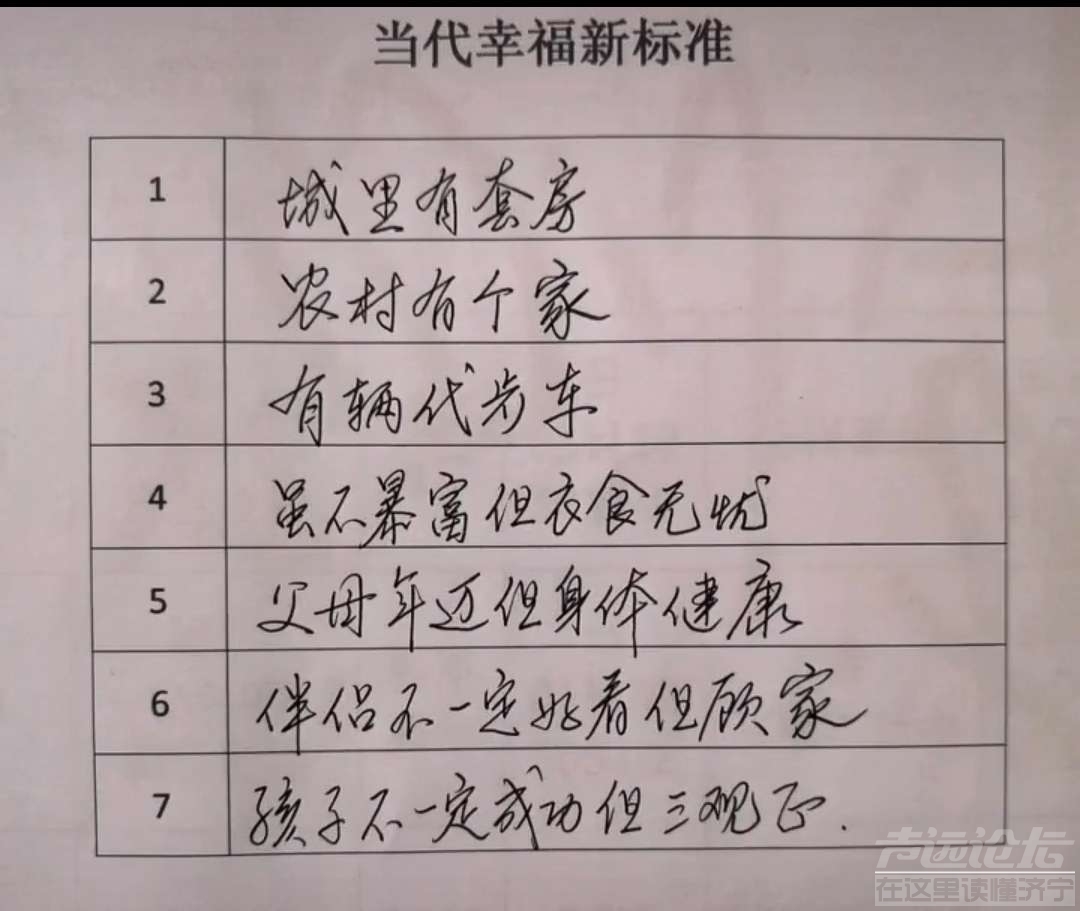 当代幸福新标准
1 城里有套房
2 农村有个家
3 有辆代步车
4 虽不暴富但衣食无忧
5 父母年迈但身体健康
6 伴侣不一定好看但顾家
7 孩子不一定成功但三观正.
声远论坛
在这里读懂济宁